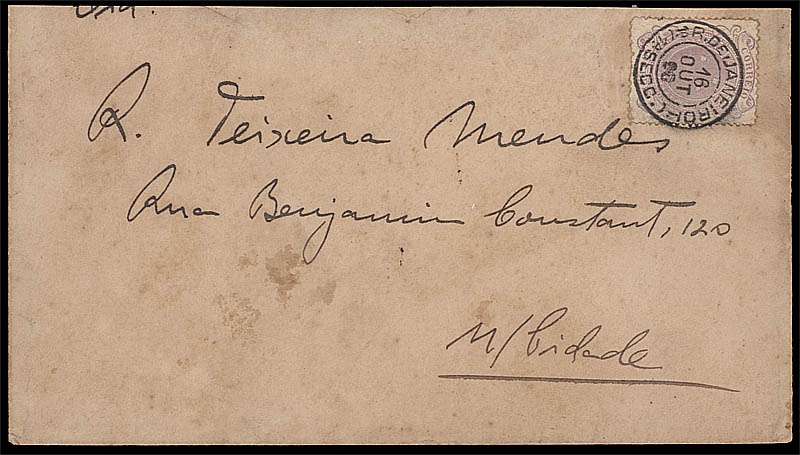 R. DE JANEIRO
1ª SECÇ.
16
OUT
CORREIO
R. Teixeira Mendes
Rua Benjamin Constant, 120
N/Cidade